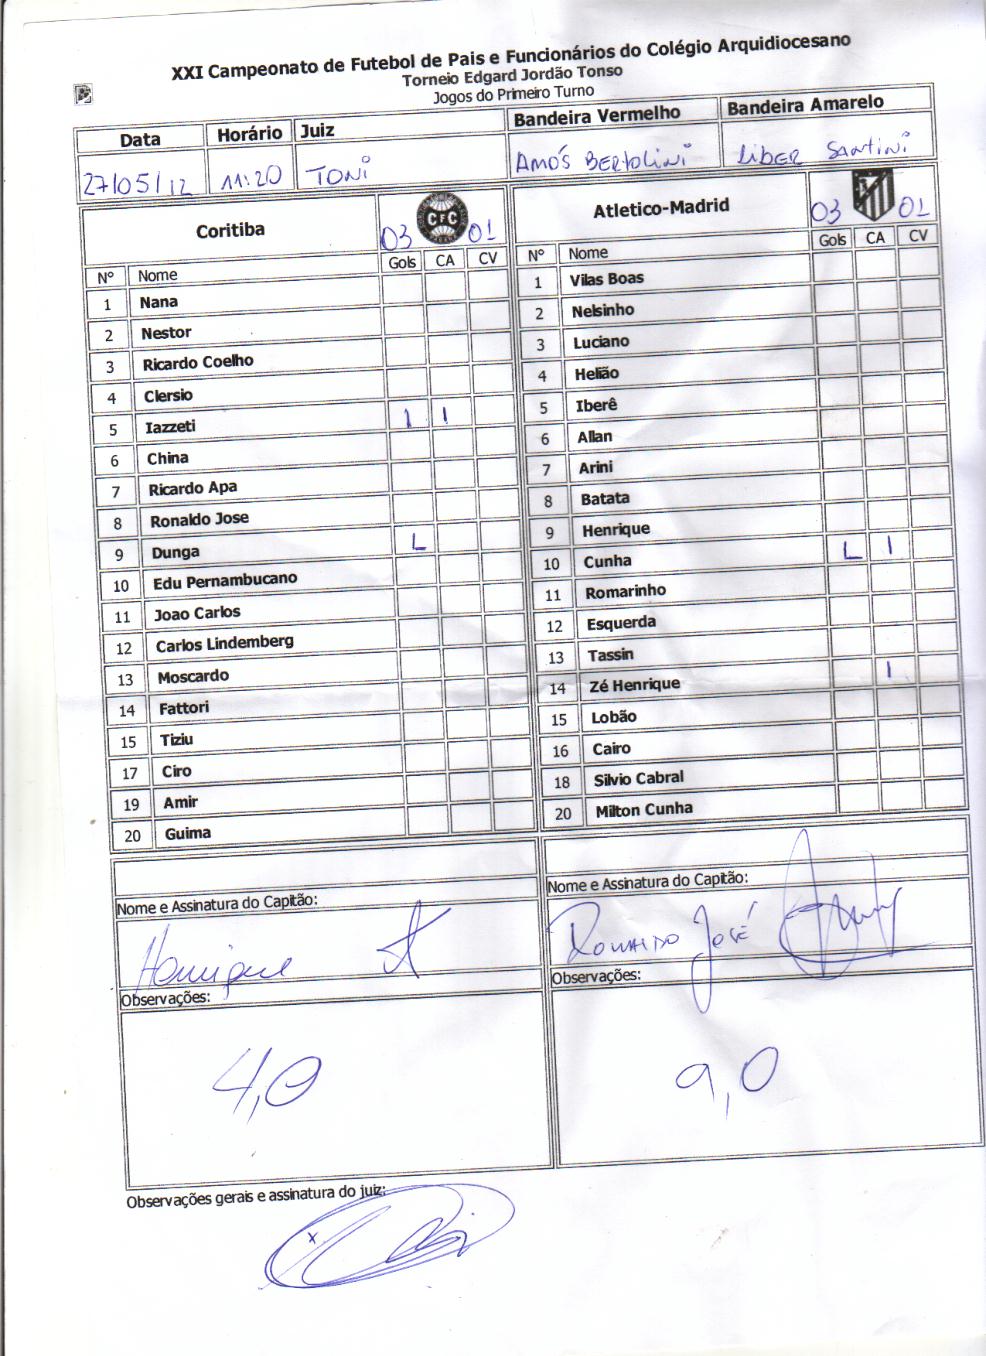 XXI Campeonato de Futebol de Pais e Funcionários do Colégio Arquidiocesano
Torneio Edgard Jordão Tonso
Jogos do Primeiro Turno
Data Horário Juiz Bandeira Vermelho Bandeira Amarelo
27/05/12 11:20 TONI AMÓS BERTOLINI LIBER SANTINI
Coritiba 03 CFC 01
Nº Nome Gols CA CV
1 Nana
2 Nestor
3 Ricardo Coelho
4 Clersio
5 Iazzeti I I
6 China
7 Ricardo Apa
8 Ronaldo Jose
9 Dunga L
10 Edu Pernambucano
11 Joao Carlos
12 Carlos Lindemberg
13 Moscardo
14 Fattori
15 Tiziu
17 Ciro
19 Amir
20 Guima
Nome e Assinatura do Capitão:
Henrique
Observações:
4,0
Atletico-Madrid 03 01
Nº Nome Gols CA CV
1 Vilas Boas
2 Nelsinho
3 Luciano
4 Helião
5 Iberê
6 Allan
7 Arini
8 Batata
9 Henrique
10 Cunha L I
11 Romarinho
12 Esquerda
13 Tassin
14 Zé Henrique I
15 Lobão
16 Cairo
18 Silvio Cabral
20 Milton Cunha
Nome e Assinatura do Capitão:
RONALDO JOSÉ
Observações:
9,0
Observações gerais e assinatura do juiz:
x